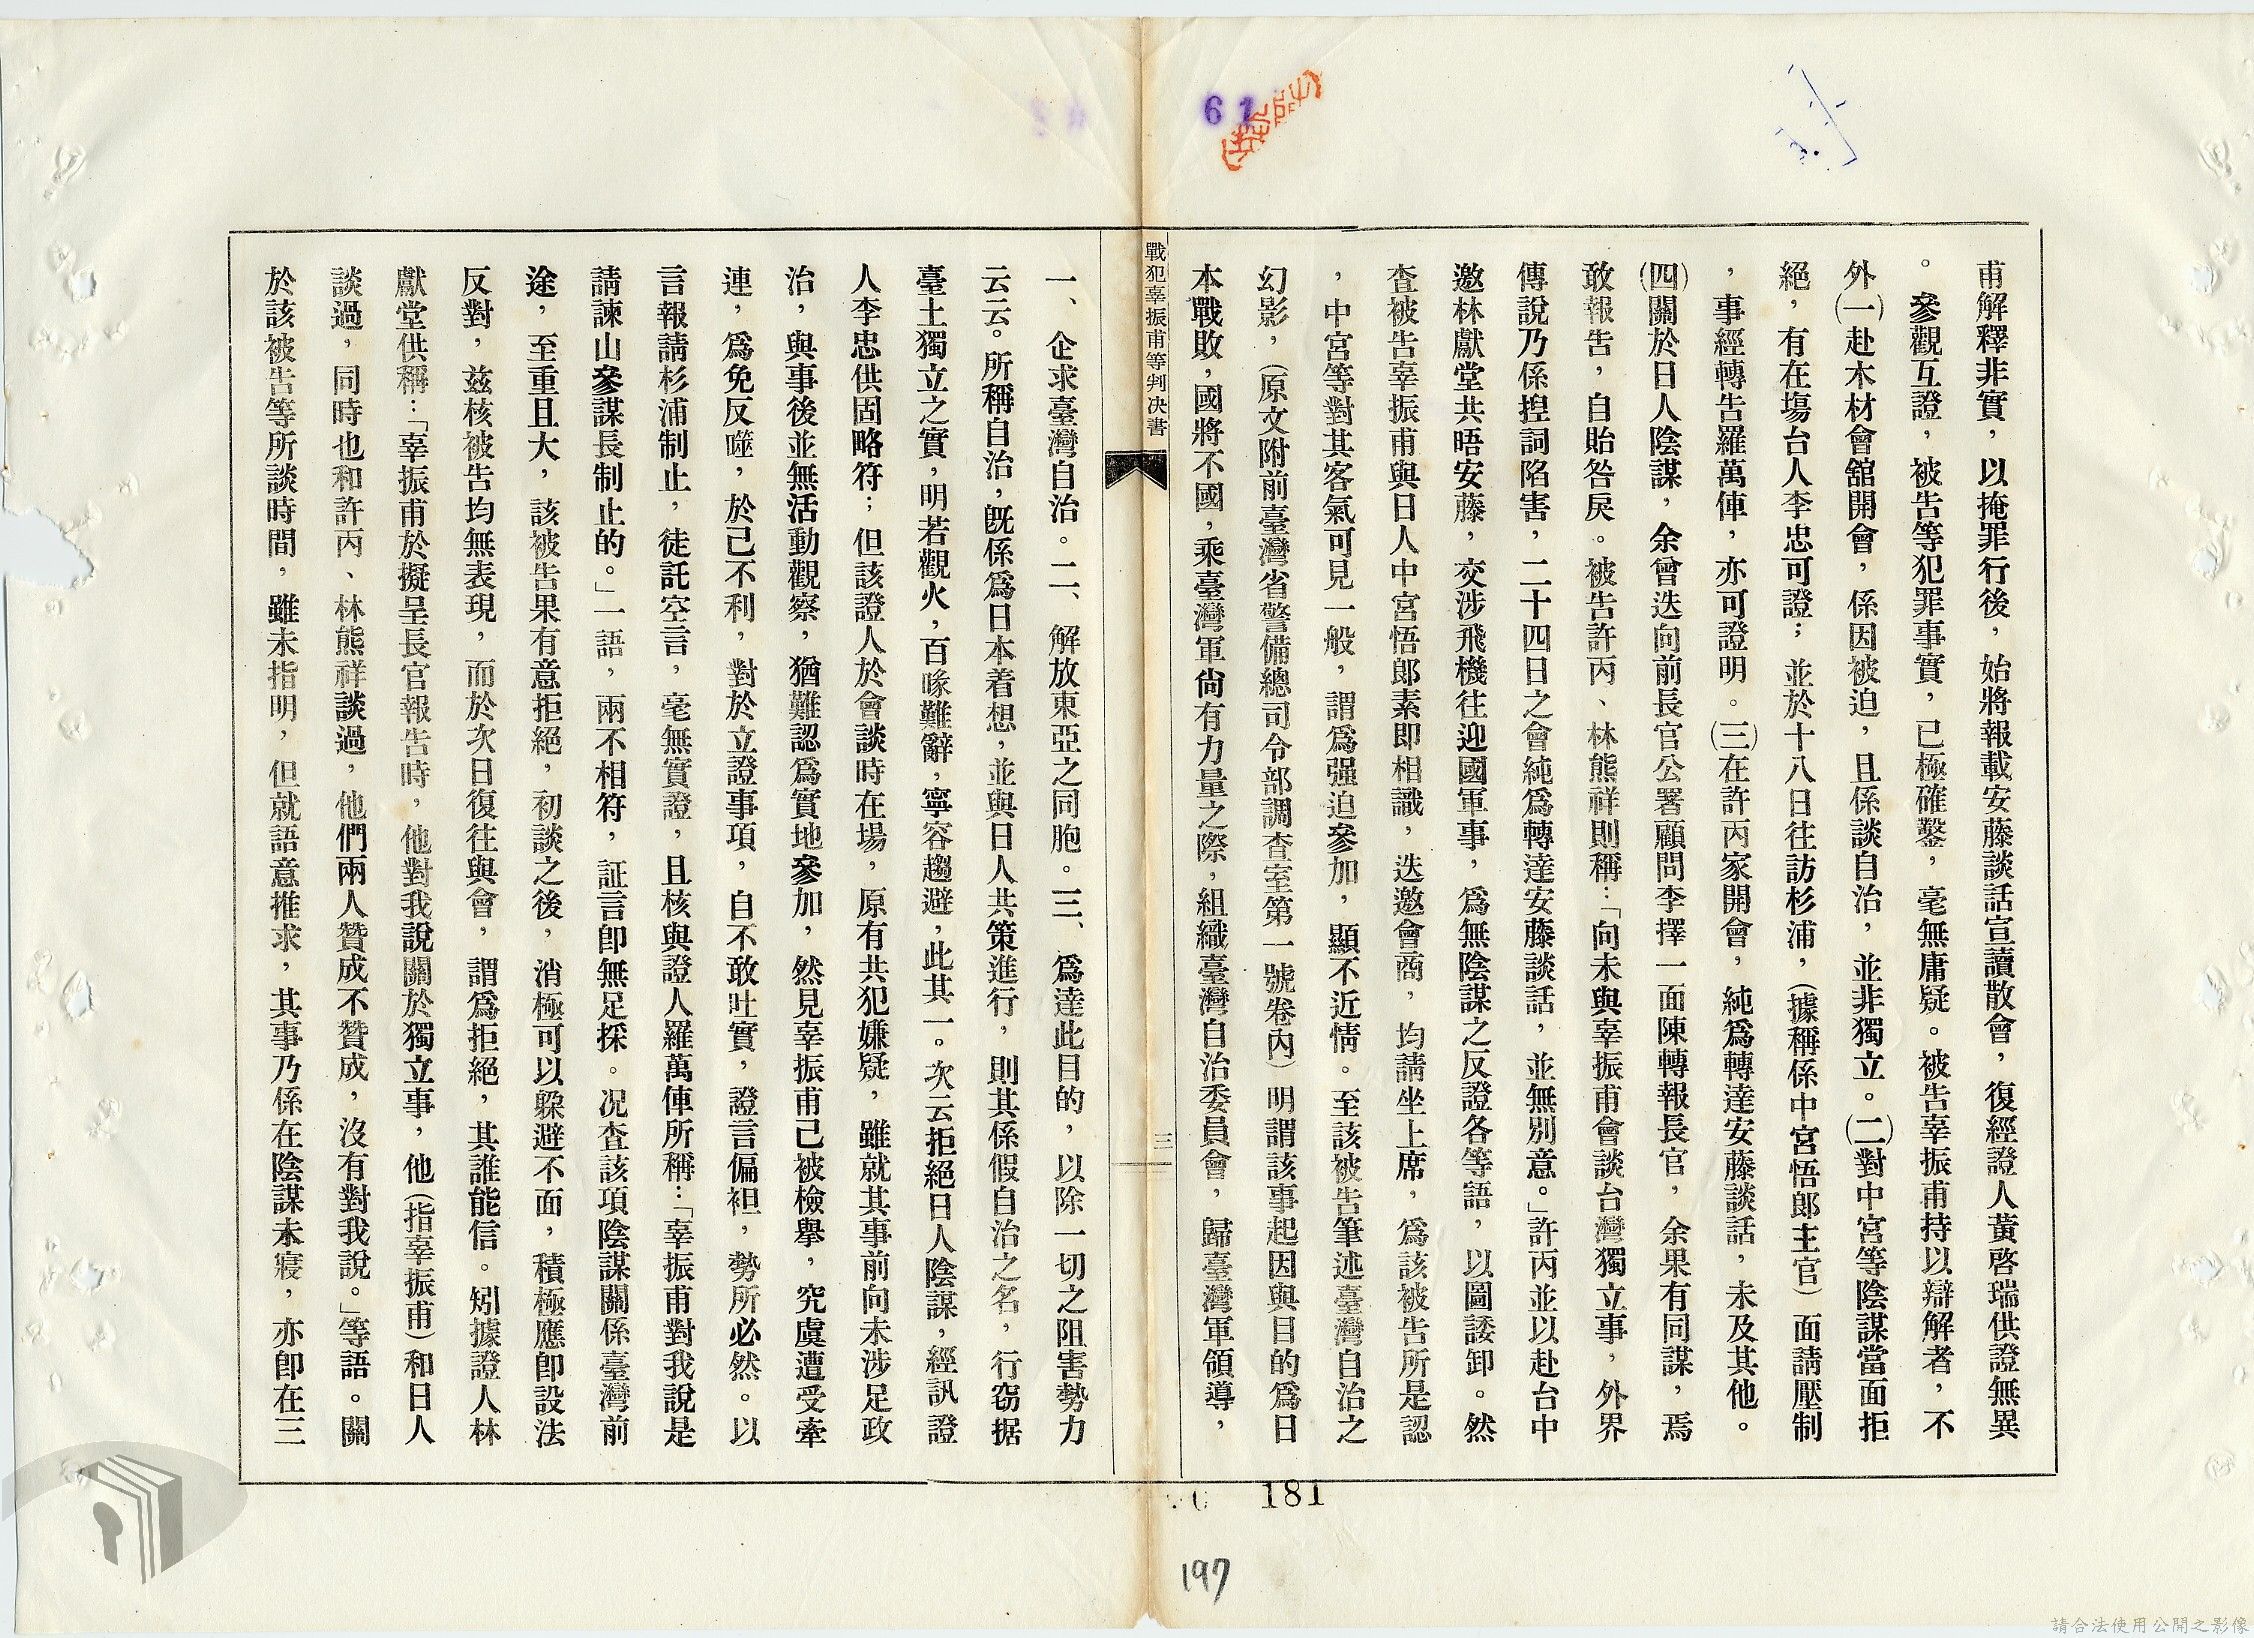 61
甫解釋非實，以掩罪行後，始將報載安藤談話宣讀散會，復經證人黃啓瑞供證無異
。參觀互證，被告等犯罪事實，已極確鑿，毫無庸疑。被告辜振甫持以辯解者，不
外㈠赴木材會舘開會，係因被迫，且係談自治，並非獨立。㈡對中宮等陰謀當面拒
絕，有在塲台人李忠可證；並於十八日往訪杉浦，（據稱係中宮悟郎主官）面請壓制
，事經轉告羅萬俥，亦可證明。㈢在許丙家開會，純爲轉達安藤談話，未及其他。
㈣關於日人陰謀，余曾迭向前長官公署顧問李擇一面陳轉報長官，余果有同謀，焉
敢報告，自貽咎戾。被告許丙、林熊祥則稱：「向未與辜振甫會談台灣獨立事，外界
傳說乃係揑詞陷害，二十四日之會純爲轉達安藤談話，並無別意。」許丙並以赴台中
邀林獻堂共晤安藤，交涉飛機往迎國軍事，爲無陰謀之反證各等語，以圖諉卸。然
查被告辜振甫與日人中宮悟郎素即相識，迭邀會商，均請坐上席，爲該被告所是認
，中宮等對其客氣可見一般，謂爲强迫參加，顯不近情。至該被告筆述臺灣自治之
幻影，（原文附前臺灣省警備總司令部調查室第一號卷內）明謂該事起因與目的爲日
本戰敗，國將不國，乘臺灣軍尙有力量之際，組織臺灣自治委員會，歸臺灣軍領導，
戰犯辜振甫等判决書
三
一、企求臺灣自治。二、解放東亞之同胞。三、爲達此目的，以除一切之阻害勢力
云云。所稱自治，旣係爲日本着想，並與日人共策進行，則其係假自治之名，行窃据
臺土獨立之實，明若觀火，百喙難辭，寧容趨避，此其一。次云拒絕日人陰謀，經訊證
人李忠供固略符；但該證人於會談時在場，原有共犯嫌疑，雖就其事前向未涉足政
治，與事後並無活動觀察，猶難認爲實地參加，然見辜振甫已被檢舉，究虞遭受牽
連，爲免反噬，於己不利，對於立證事項，自不敢吐實，證言偏袒，勢所必然。以
言報請杉浦制止，徒託空言，毫無實證，且核與證人羅萬俥所稱：「辜振甫對我說是
請諫山參謀長制止的。」一語，兩不相符，証言卽無足採。况查該項陰謀關係臺灣前
途，至重且大，該被告果有意拒絕，初談之後，消極可以躱避不面，積極應卽設法
反對，茲核被告均無表現，而於次日復往與會，謂爲拒絕，其誰能信。矧據證人林
獻堂供稱：「辜振甫於擬呈長官報告時，他對我說關於獨立事，他（指辜振甫）和日人
談過，同時也和許丙、林熊祥談過，他們兩人贊成不贊成，沒有對我說。」等語。關
於該被告等所談時間，雖未指明，但就語意推求，其事乃係在陰謀未寢，亦卽在三
181
197
請合法使用公開之影像